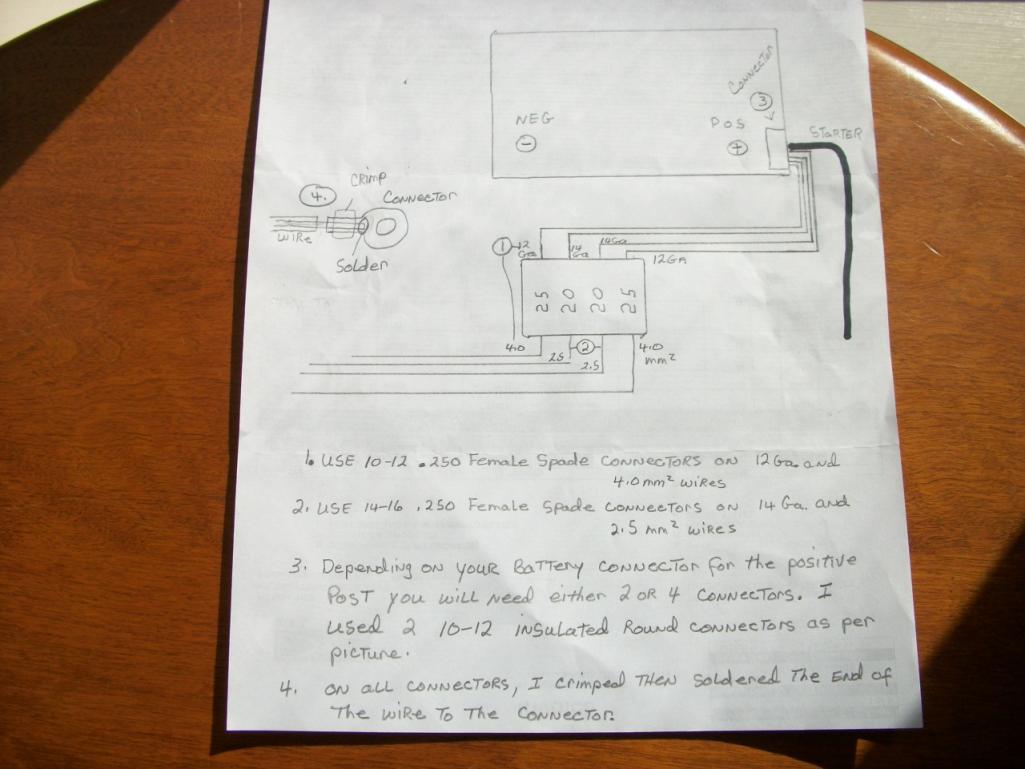 CONNECTOR
3
NEG
POS
STARTER
-
+
4.
CRIMP
CONNECTOR
WIRE
Solder
1
12
Ga
14
Ga
14Ga
12GA
25 20 20 25
4.0
25
2
2.5
4.0
mm²
1. USE 10-12 .250 Female Spade CONNECTORS ON 12Ga. and
4.0mm² wires
2. USE 14-16 .250 Female Spade CONNECTORS ON 14 Ga. and
2.5 mm² wires
3. Depending on your BATTERY CONNECTOR for the positive
POST you will need either 2 OR 4 CONNECTORS. I
used 2 10-12 insulated Round connectors as per
picture.
4. ON ALL CONNECTORS, I crimped THEN Soldered The End of
The wire To The CONNECTOR.